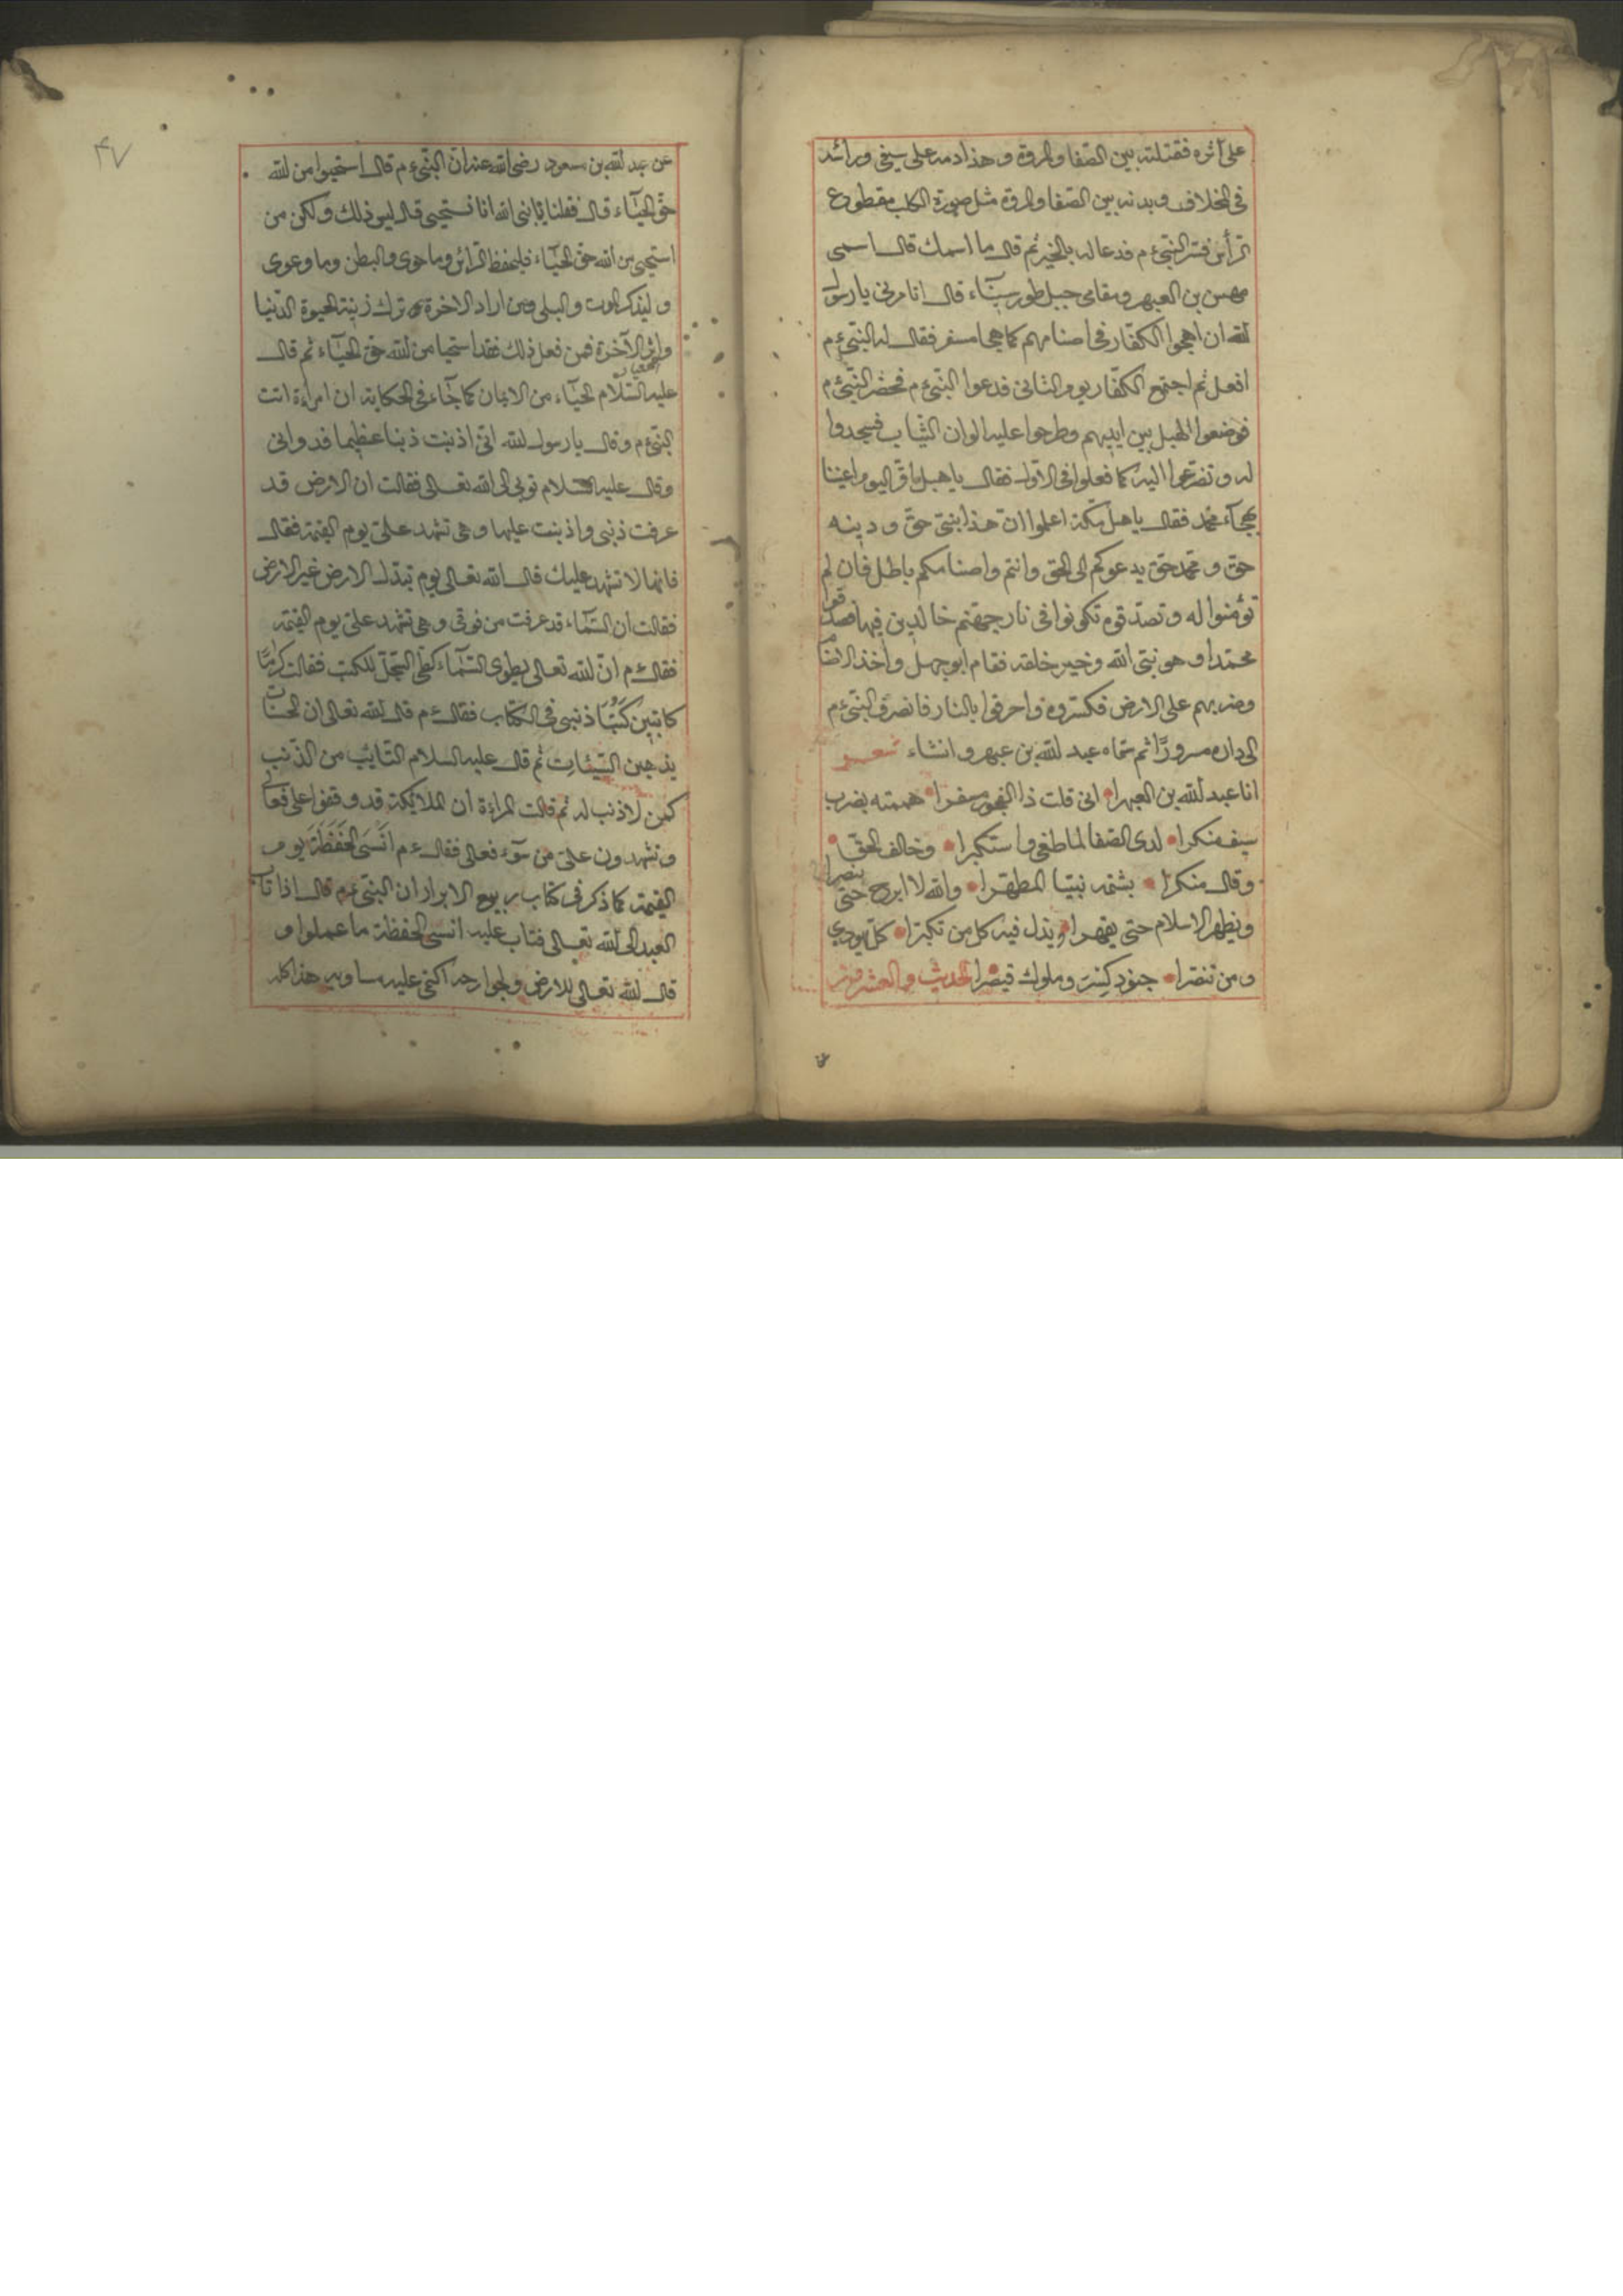 على اثره فقتلته بين الصفا والمروة وهذا دمه على سيفى ورأسه
فى المخلاف وبدنه بين الصفا والمروة مثل صورة الكلب مقطوع
الرأس فسر النبىء م فدعا له بالخير ثم قال ما اسمك قال اسمى
مهين بن العبهر ومقامى جبل طور سيناء قال انا مرنى يا رسول
الله ان اهجوا الكفار فى اصنامهم كما هجا مسفر فقال له النبىء م
افعل ثم اجتمع الكفار يوم الثانى فدعوا النبىء م فحضر النبىء م
فوضعوا الهبل بين ايديهم وطرحوا عليه الوان الثياب فسجدوا
له وتضرعوا اليه كما فعلوا فى الاول فقال يا هبل اليوم اعيننا
بهجاء محمد فقال يا هل مكة اعلموا ان هذا بنىّ حق ودينه
حق ومحمد حق يدعوكم الى الحق وانتم واصنامكم باطل فان لم
تؤمنوا له وتصدقوه تكونوا فى نار جهنم خالدين فيها فصدقوا
محمدا وهو نبى الله وخير خلقه فقام ابو جهل واخذ الاصنام
وضربهم على الارض فكسروه واحرقوا بالنار فانصرف النبىء م
الى داره مسرورًا ثم سماه عبد الله بن عبهر وانشاء شعر
انا عبد الله بن العبهرا انى قلت ذا الفجور مسفرا هممته بضرب
سيف منكرا لدى الصفا لما طغى واستكبرا وخالف الحق
وقال منكرا بشتمه نبينا المطهرا والله لا ابرح حتى ينصرا
ويظهر الاسلام حتى يقهرا ويذل فيه كل من تكبرا كل يهودي
ومن تنصرا جنود كسر وملوك قيصرا الحديث والعشرون
عن
٤٧
عن عبد الله بن مسعود رضى الله عنه ان النبىء م قال استحيوا من الله
حق الحياء قال فقلنا يا نبى الله انا نستحيى قال ليس ذلك ولكن من
استحيى من الله حق الحياء فليحفظ الرأس وما حوى والبطن وما وعوى
وليذكر الموت والبلى ومن اراد الاخرة ترك زينة الحيوة الدنيا
واثر الآخرة فمن فعل ذلك فقد استحيا من الله حق الحياء ثم قال
عليه السلام الحياء من الايمان كما جاء فى الحكاية ان امراءة اتت
النبىء م وقال يا رسول الله انى اذنبت ذنبا عظيما فدوانى
وقال عليه السلام توبى الى الله تعالى فقالت ان الارض قد
عرفت ذنبى واذنبت عليها وهى تشهد على يوم القيمة فقال
فانها لا تشهد عليك قال الله تعالى يوم تبدل الارض غير الارض
فقالت ان السماء قد عرفت من فوقى وهى تشهد على يوم القيمة
فقال ء م ان الله تعالى يطوى السماء كطى السجل للكتب فقالت كرامًا
كاتبين كَتَبُا ذنبى فى الكتاب فقال ء م قال الله تعالى ان الحسنات
يذهبن السيئاتِ ثم قال عليه السلام التايب من الذنب
كمن لا ذنب له ثم قالت المراءة ان الملايكة قد وقفوا على فعالى
وتشهدون على من سوء فعالى فقال ء م اَنْسَى الحَفَظَةَ يوم
القيمة كما ذكر فى كتاب ربيع الابرار ان النبىء م قال اذا تاب
العبد الى الله تعالى فتاب عليه انسى الحفظة ما عملوا و
قال الله تعالى للارض ولجوارحه اكتمى عليه مساويه هذا كله